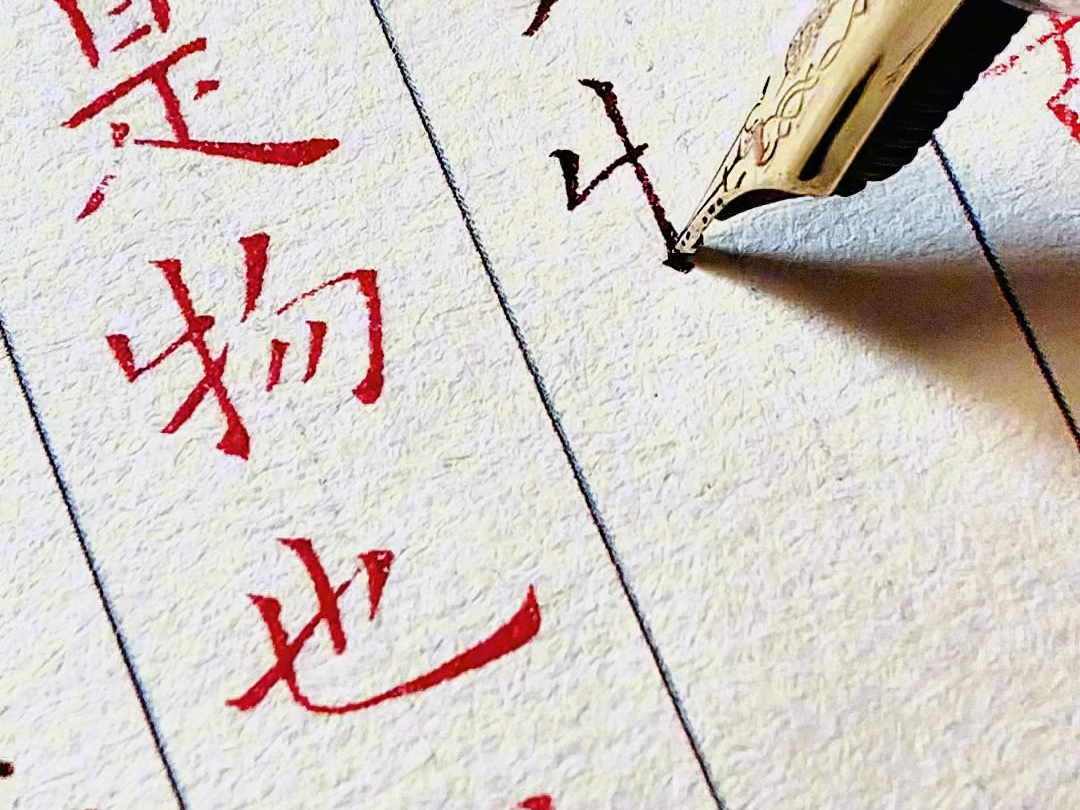 是物也